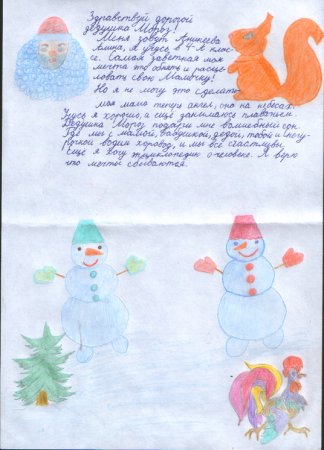 Здравствуй дорогой
дедушка Мороз!
Меня зовут Аникеева
Алица, я учусь в 4-А клас-
се. Самая заветная моя
мечта это обнять и расце-
ловать свою Мамочку!
Но я не могу это сделать
моя мама теперь ангел, она на небесах.
Учусь я хорошо, и ещё занимаюсь плаванием.
Дедушка Мороз подари мне волшебный сон.
Где мы с мамой, бабушкой, дедой, тобой и Снегу-
рочкой водим хоровод, и мы все счастливы.
Ещё я хочу энциклопедию о человеке. Я верю
что мечты сбываются.